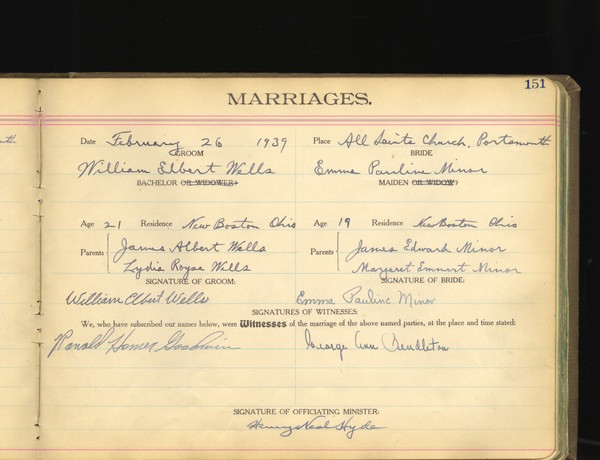 151
MARRIAGES.
Date February 26 1939 Place All Saints Church, Portsmouth
GROOM BRIDE
William Elbert Wells Emma Pauline Minor
BACHELOR OR WIDOWER) MAIDEN OR WIDOW)
Age 21 Residence New Boston Ohio Age 19 Residence New Boston Ohio
Parents James Albert Wells Parents James Edward Minor
Lydia Royse Wells Margaret Emmert Minor
SIGNATURE OF GROOM: SIGNATURE OF BRIDE:
William Elbert Wells Emma Pauline Minor
SIGNATURES OF WITNESSES:
We, who have subscribed our names below, were Witnesses of the marriage of the above named parties, at the place and time stated:
Ranald Homer Goodwin George Ann Pendleton
SIGNATURE OF OFFICIATING MINISTER:
Henry Neal Hyde